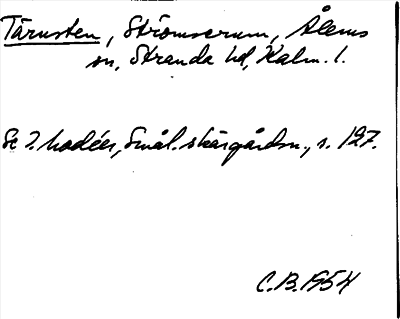 Tärnsten, Strömserum, Ålems
sn, Stranda hd, Kalm. l.
Se I. Modéer, Smål. skärgårdsn., s. 127.
C.B. 1954